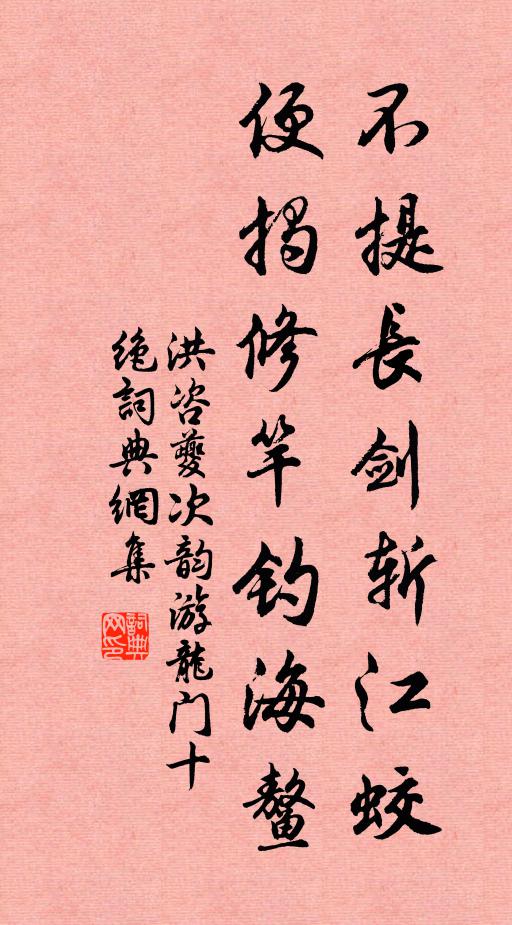 不提長劍斬江蛟
便揭修竿釣海鰲
洪咨夔次韵游龍门十
绝詞典網集
詞典网印